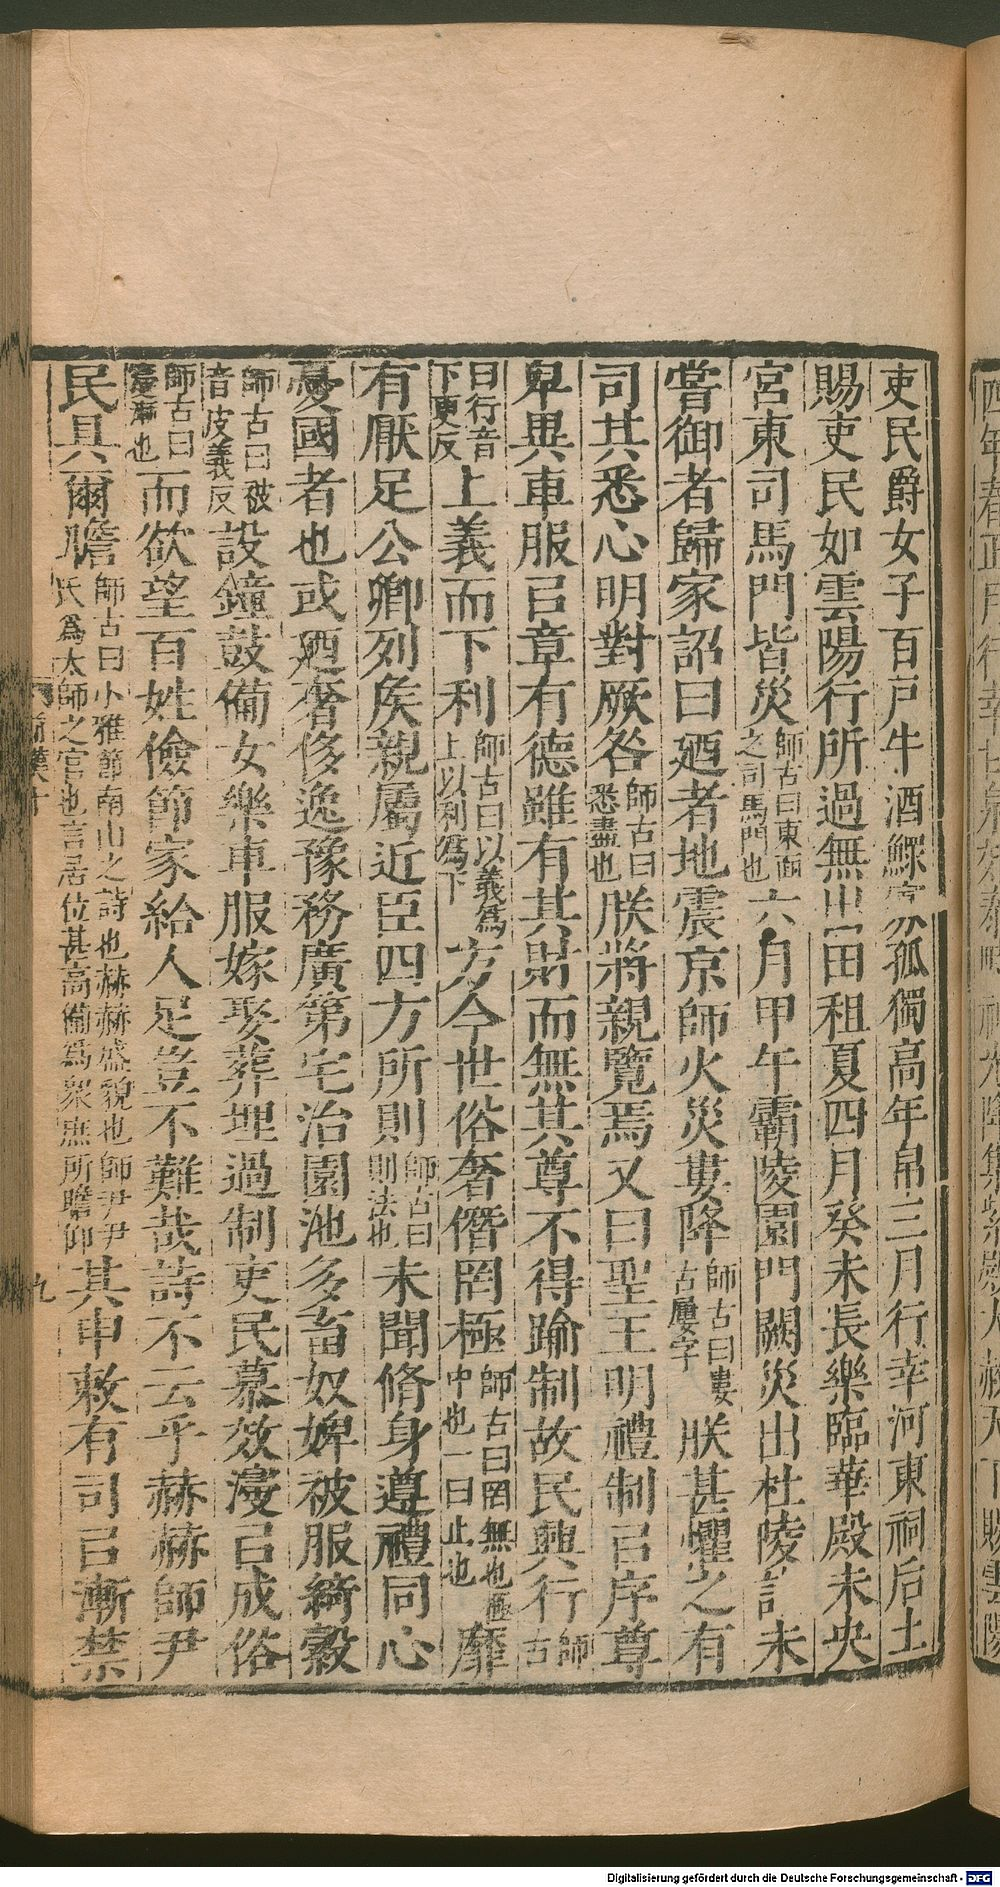 吏民爵女子百戸牛酒鰥寡孤獨高年帛三月行幸河東祠后土
賜吏民如雲陽行所過無出田租夏四月癸未長樂臨華殿未央
宮東司馬門皆災師古曰東面之司馬門也六月甲午霸陵園門闕災出杜陵諸未
嘗御者歸家詔曰廼者地震京師火災婁降師古曰婁古屢字朕甚懼之有
司其悉心明對厥咎師古曰悉盡也朕將親覽焉又曰聖王明禮制㠯序尊
卑異車服㠯章有德雖有其財而無其尊不得踰制故民興行師古
曰行音下更反上義而下利師古曰以義爲上以利爲下方今世俗奢僭罔極師古曰罔無也極中也一曰止也靡
有厭足公卿列侯親屬近臣四方所則師古曰則法也未聞脩身遵禮同心
憂國者也或廼奢侈逸豫務廣第宅治園池多畜奴婢被服綺縠
師古曰被音皮義反設鐘鼓備女樂車服嫁娶葬埋過制吏民慕效寖㠯成俗
師古曰寖漸也而欲望百姓儉節家給人足豈不難哉詩不云乎赫赫師尹
民具爾瞻師古曰小雅節南山之詩也赫赫盛貌也師尹尹氏爲太師之官也言居位甚高備爲衆庶所瞻仰其申敕有司㠯漸禁
前漢十
九
Digitalisierung gefördert durch die Deutsche Forschungsgemeinschaft - DFG